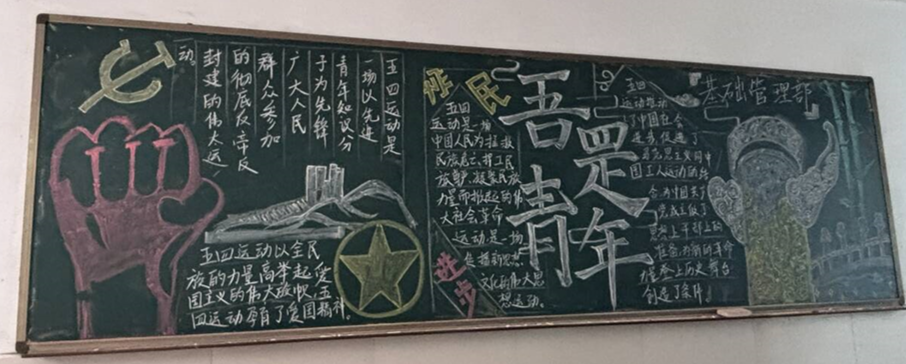 五四运动是
一场以先进
青年知识分
子为先锋
广大人民
群众参加
的彻底反帝反
封建的伟大运
动
五四运动以全民
族的力量高举起爱
国主义的伟大旗帜,五
四运动孕育了爱国精神.
民
进步
五四
运动是一场
中国人民为拯救
民族危亡、捍卫民
族尊严、凝聚民族
力量而掀起的伟
大社会革命
运动是一场
传播新思想
文化的伟大思
想运动.
吾是
青年
五四
运动推动
了中国社会
进步促进了
马克思主义同中
国工人运动的结
合为中国共产
党成立做了
思想上干部上的
准备,为新的革命
力量登上历史舞台
创造了条件
基础管理部